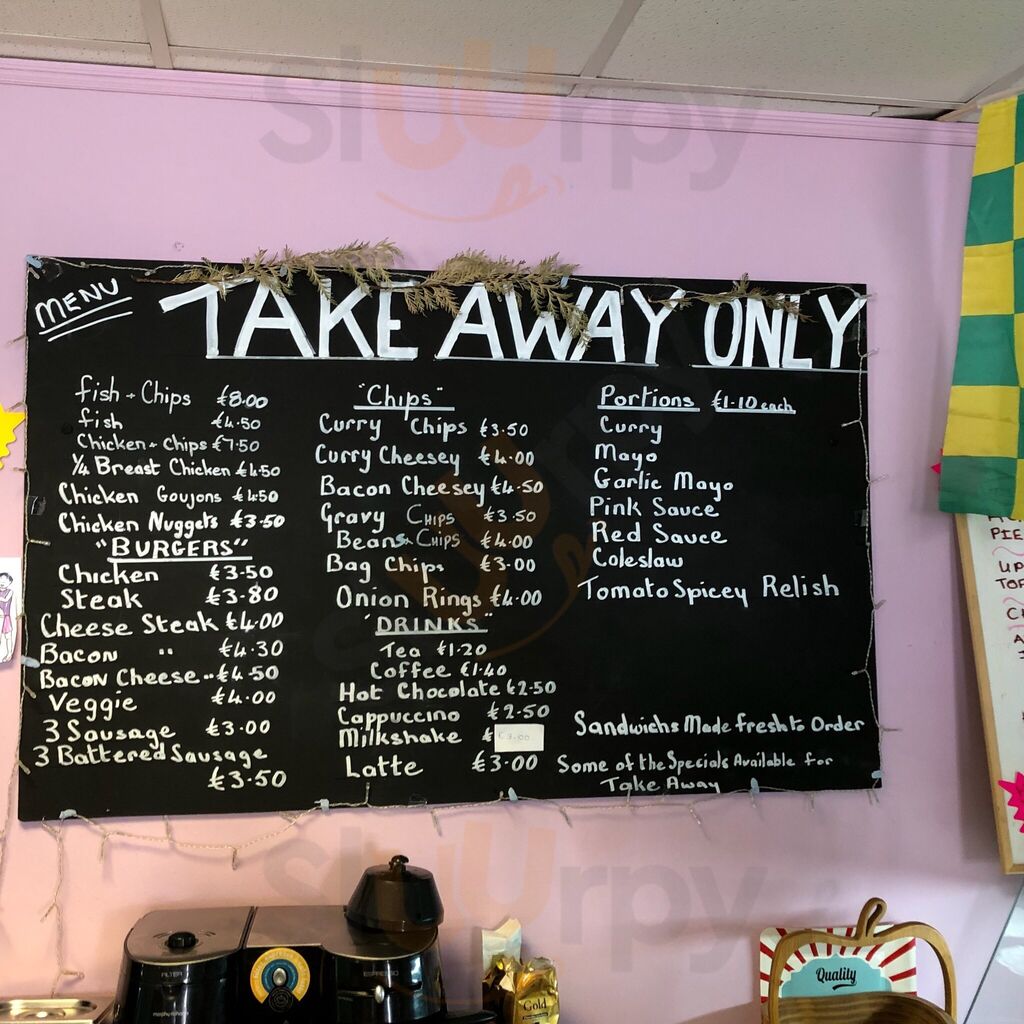 sluurpy
MENU
TAKE AWAY ONLY
fish + Chips £8.00
fish £4.50
Chicken + Chips £7.50
1/4 Breast Chicken £4.50
Chicken Goujons £4.50
Chicken Nuggets £3.50
"BURGERS"
Chicken £3.50
Steak £3.80
Cheese Steak £4.00
Bacon " £4.30
Bacon Cheese " £4.50
Veggie £4.00
3 Sausage £3.00
3 Battered Sausage
£3.50
"Chips"
Curry Chips £3.50
Curry Cheesey £4.00
Bacon Cheesey £4.50
Gravy Chips £3.50
Beans + Chips £4.00
Bag Chips £3.00
Onion Rings £4.00
"DRINKS"
Tea £1.20
Coffee £1.40
Hot Chocolate £2.50
Cappuccino £2.50
Milkshake £3.00
Latte £3.00
Portions £1-10 each
Curry
Mayo
Garlic Mayo
Pink Sauce
Red Sauce
Coleslaw
Tomato Spicey Relish
Sandwichs Made fresh to Order
Some of the Specials Available for
Take Away
PIE
UP
TO
sluurpy
FILTER
ESPRESSO
morphy richards
Gold
Quality